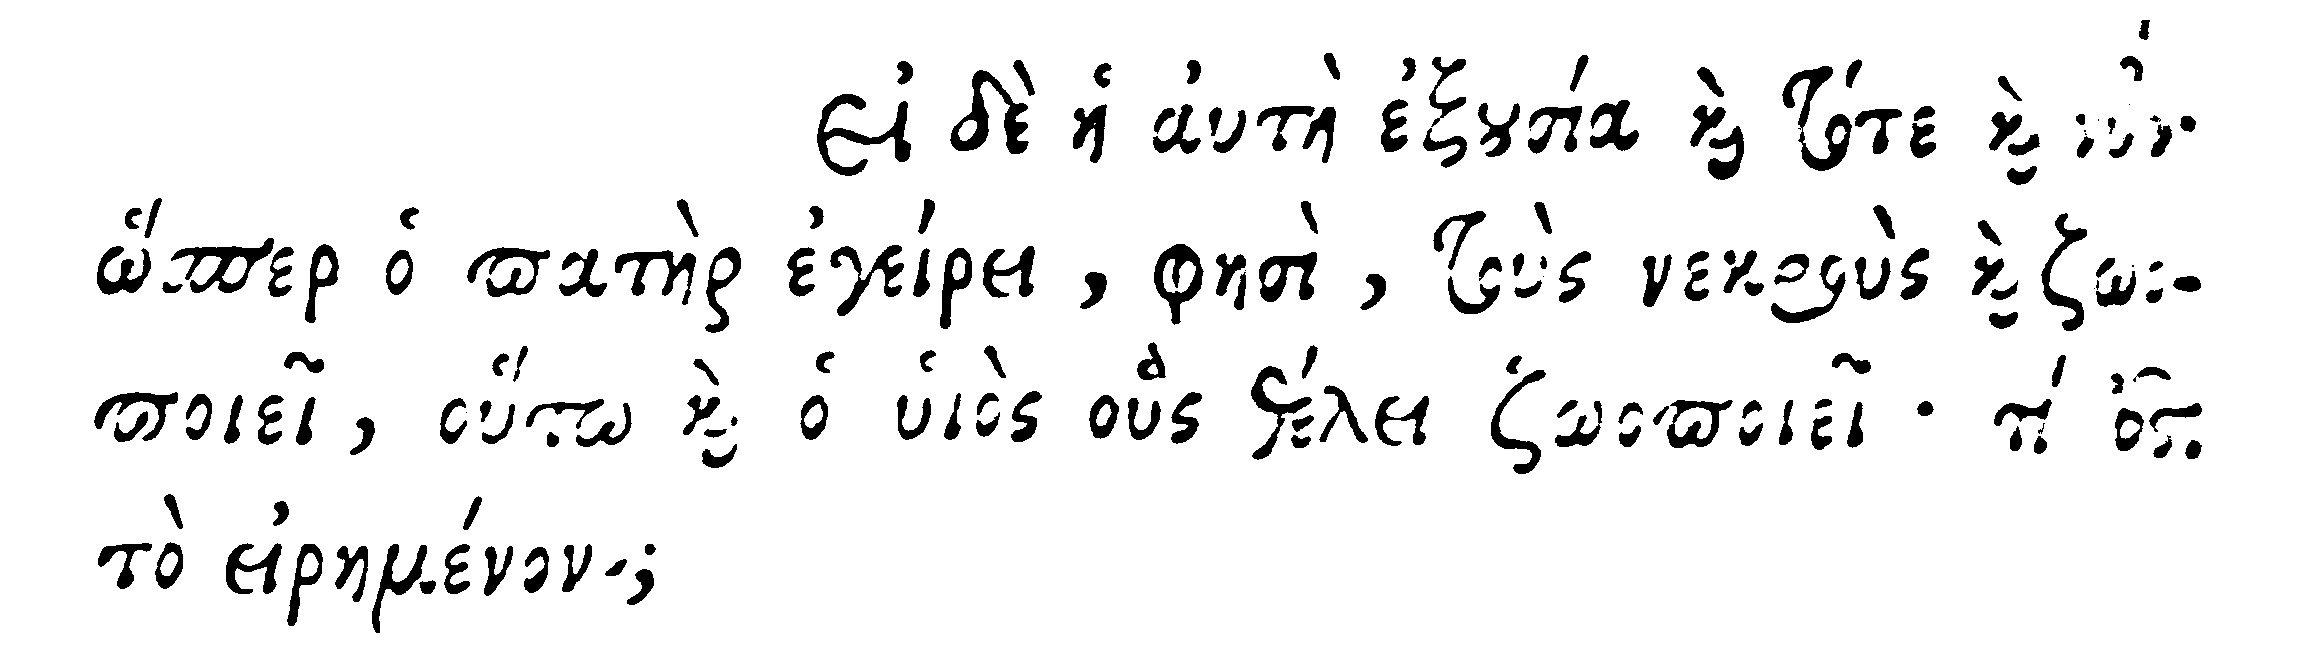 Εἰ δὲ ἡ ἀυτὴ ἐξουσία καὶ τότε καὶ νῦν·
ὥσπερ ὁ πατὴρ ἐγείρει, φησὶ, τοὺς νεκροὺς καὶ ζωο-
ποιεῖ, οὕτω καὶ ὁ ὑιὸς οὓς θέλει ζωοποιεῖ· τί ὅτι
τὸ εἰρημένον·;